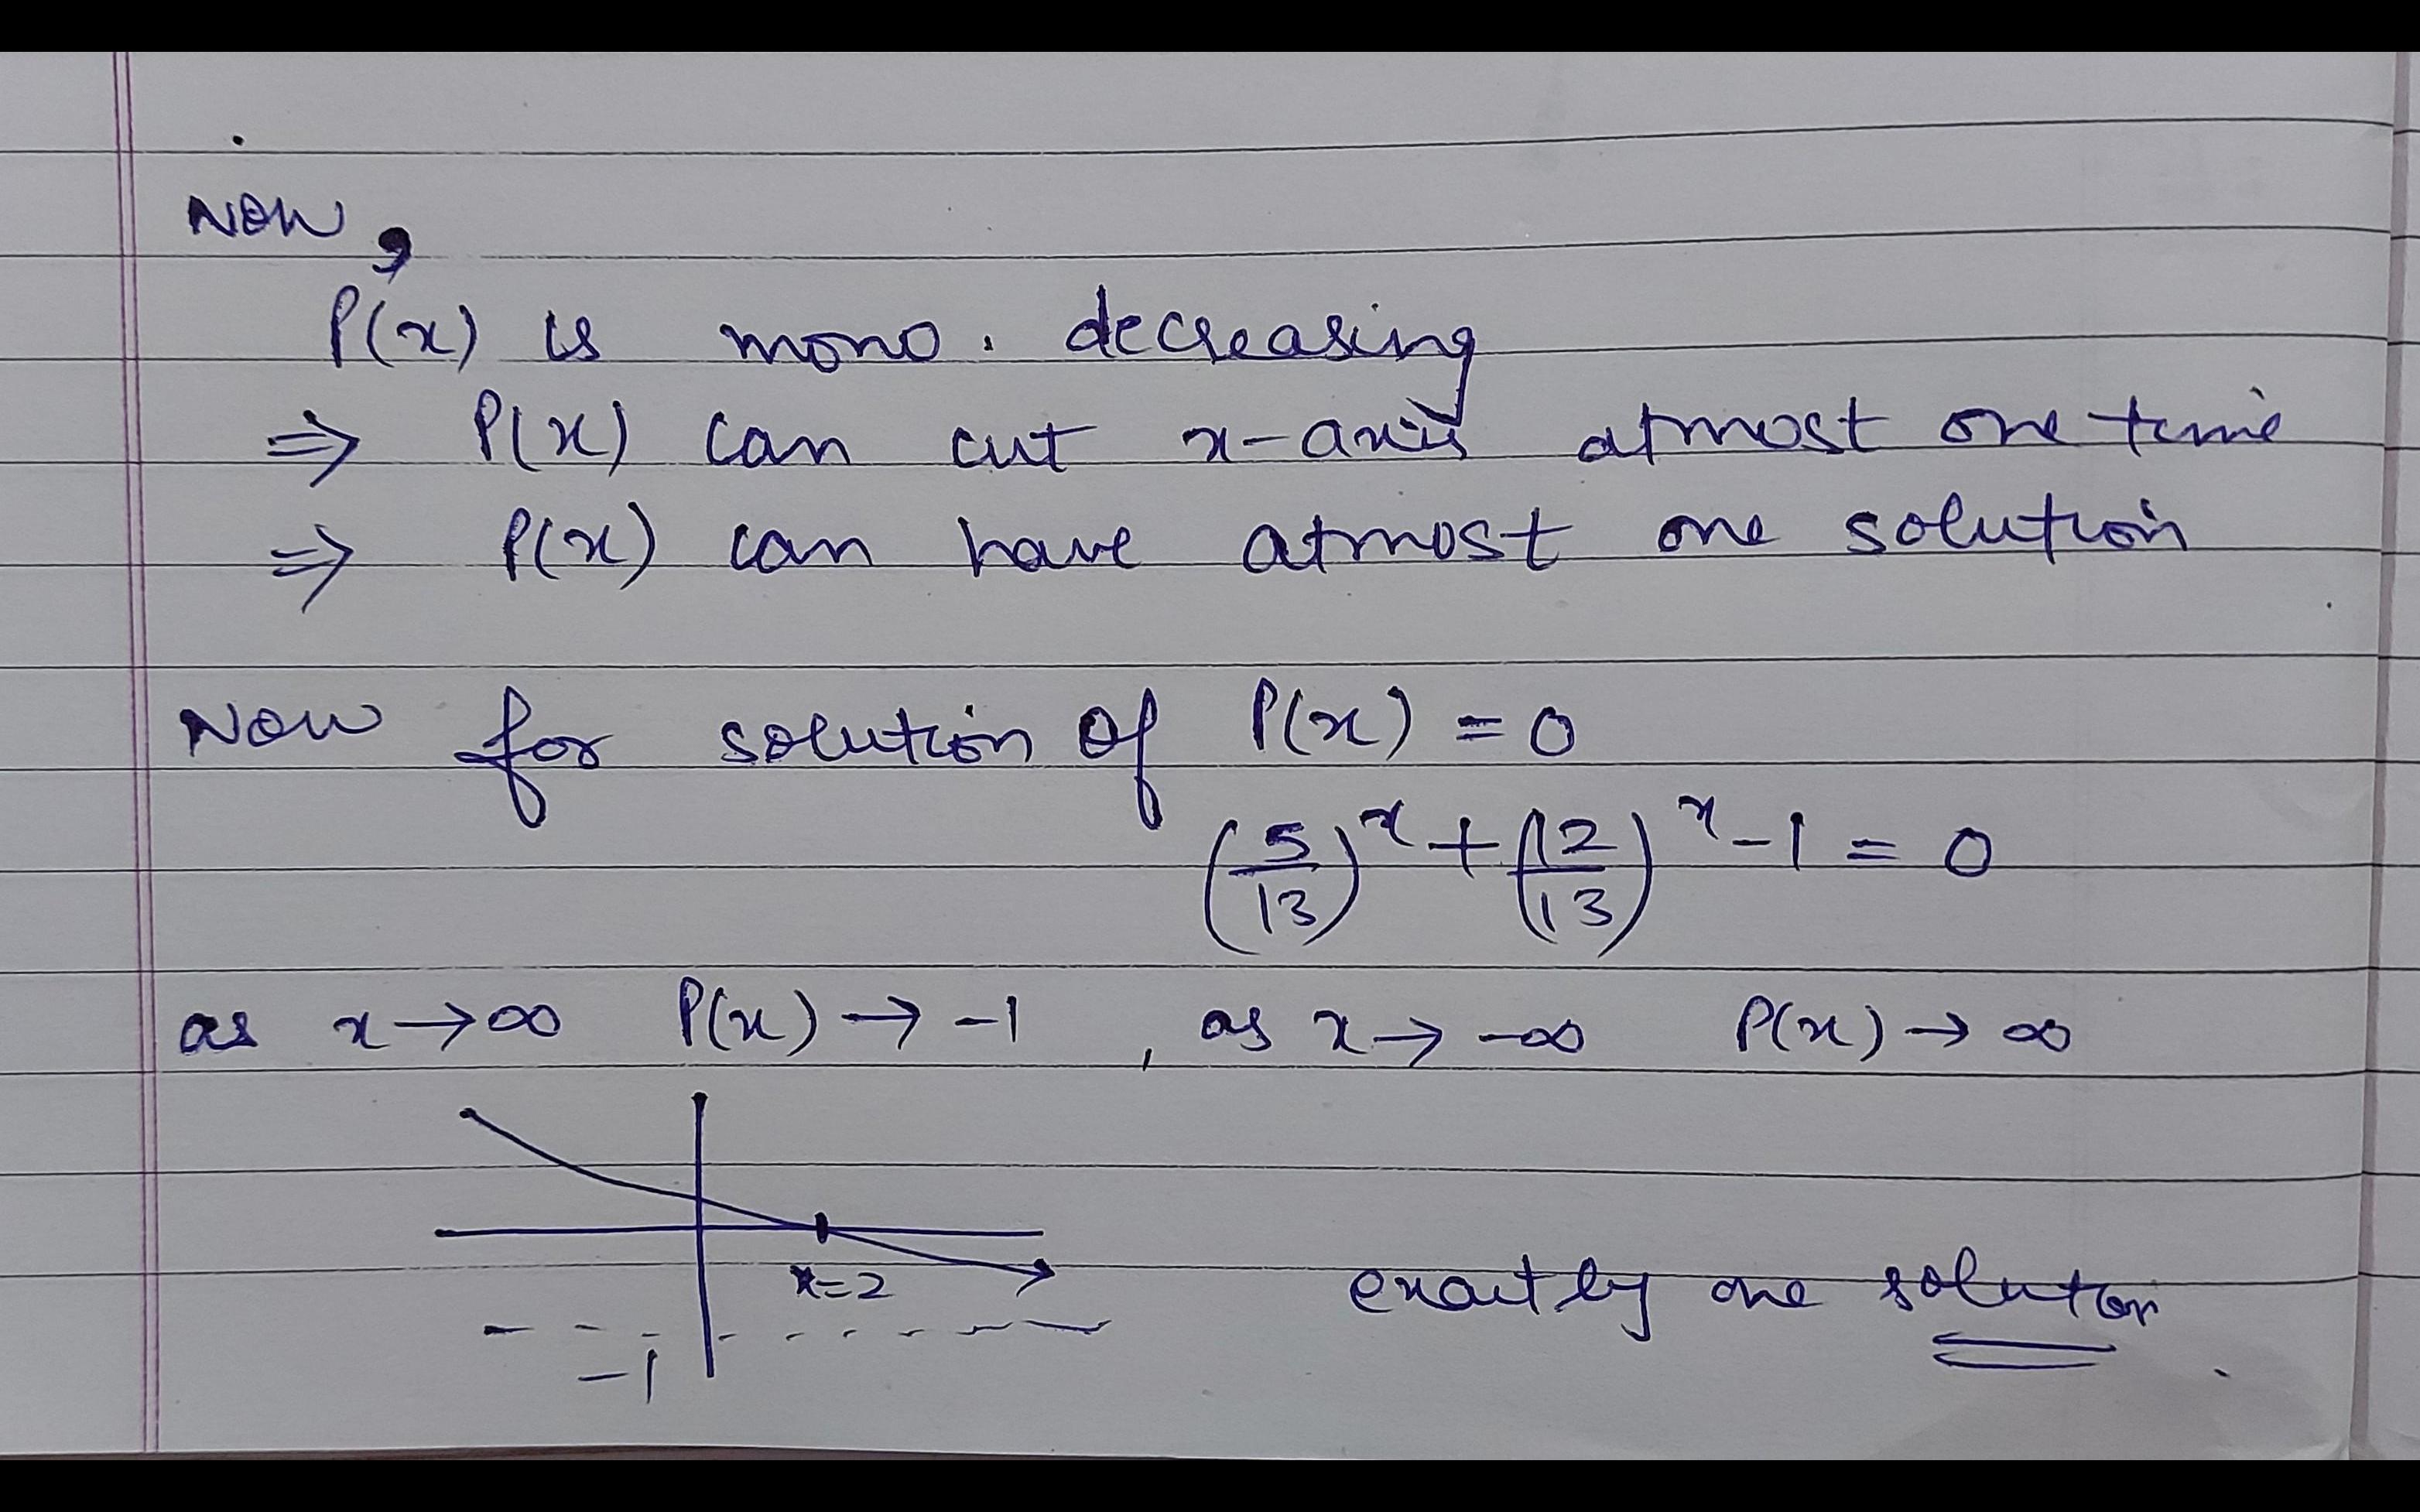 Now,
P(x) is mono. decreasing
⇒ P(x) can cut x-axis atmost one time
⇒ P(x) can have atmost one solution
Now for solution of P(x) = 0
(5/13)^x + (12/13)^x - 1 = 0
as x → ∞ P(x) → -1 , as x → -∞ P(x) → ∞
x=2
exactly one solution
-1